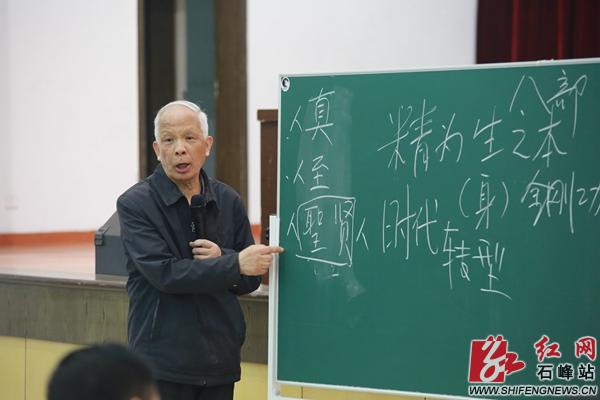 八部
人真 精为生之本
人至 (身) 金刚功
人聖贤人 时代
转型
红网
石峰站
WWW.SHIFENGNEWS.CN